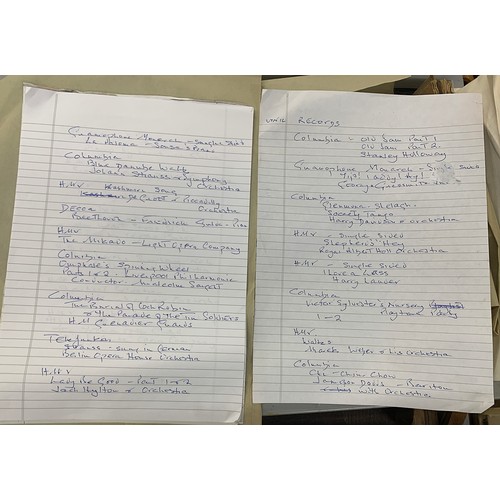 Gramophone Monarch - Single Sided
La Paloma - Sousa's Band
Columbia
Blue Danube Waltz
Johann Strauss & Symphony
Orchestra
H.M.V
De Groot & Piccadilly
Orchestra
Decca
H.M.V
The Mikado - Light Opera Company
Columbia
Omphale's Spinning Wheel
Parts 1 & 2 - Liverpool Philharmonic
Conductor - Malcolm Sargent
Columbia
The Funeral of Cock Robin
& The Parade of the Tin Soldiers
H.M Grenadier Guards
Telefunken
Strauss - sung in German
Berlin Opera House Orchestra
H.M.V
Lady Be Good - Part 1 & 2
Jack Hylton & Orchestra
Records
Columbia - Old Sam Part 1
Old Sam Part 2
Stanley Holloway
Gramophone Monarch - Single Sided
George
Columbia
Glenmona Shelagh
Society Tango
Harry Davidson & Orchestra
H.M.V - Single Sided
Shepherd's Hey
Royal Albert Hall Orchestra
H.M.V - Single Sided
I Love a Lass
Harry Lauder
Columbia
Victor Sylvester's Nursery
1 - 2 Playtime Party
H.M.V
Waltzes
Marek Weber & his Orchestra
Columbia
Chu - Chin - Chow
Davis - Baritone
with Orchestra